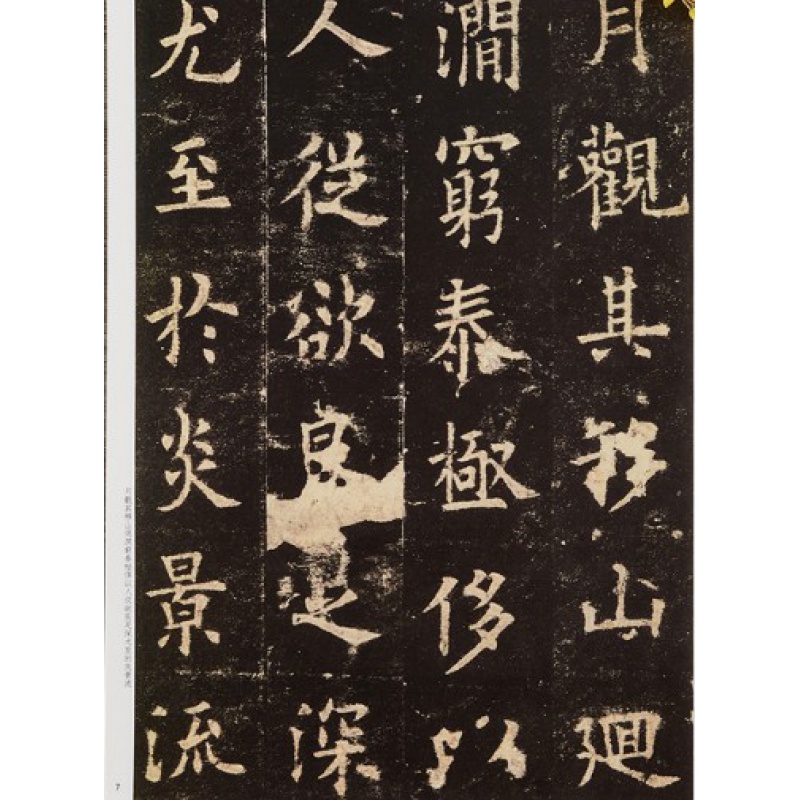 月觀其移山廻
澗窮泰極侈以
人從欲良足深
尤至於炎景流
月觀其移山廻澗窮泰極侈以人從欲良足深尤至於炎景流
7